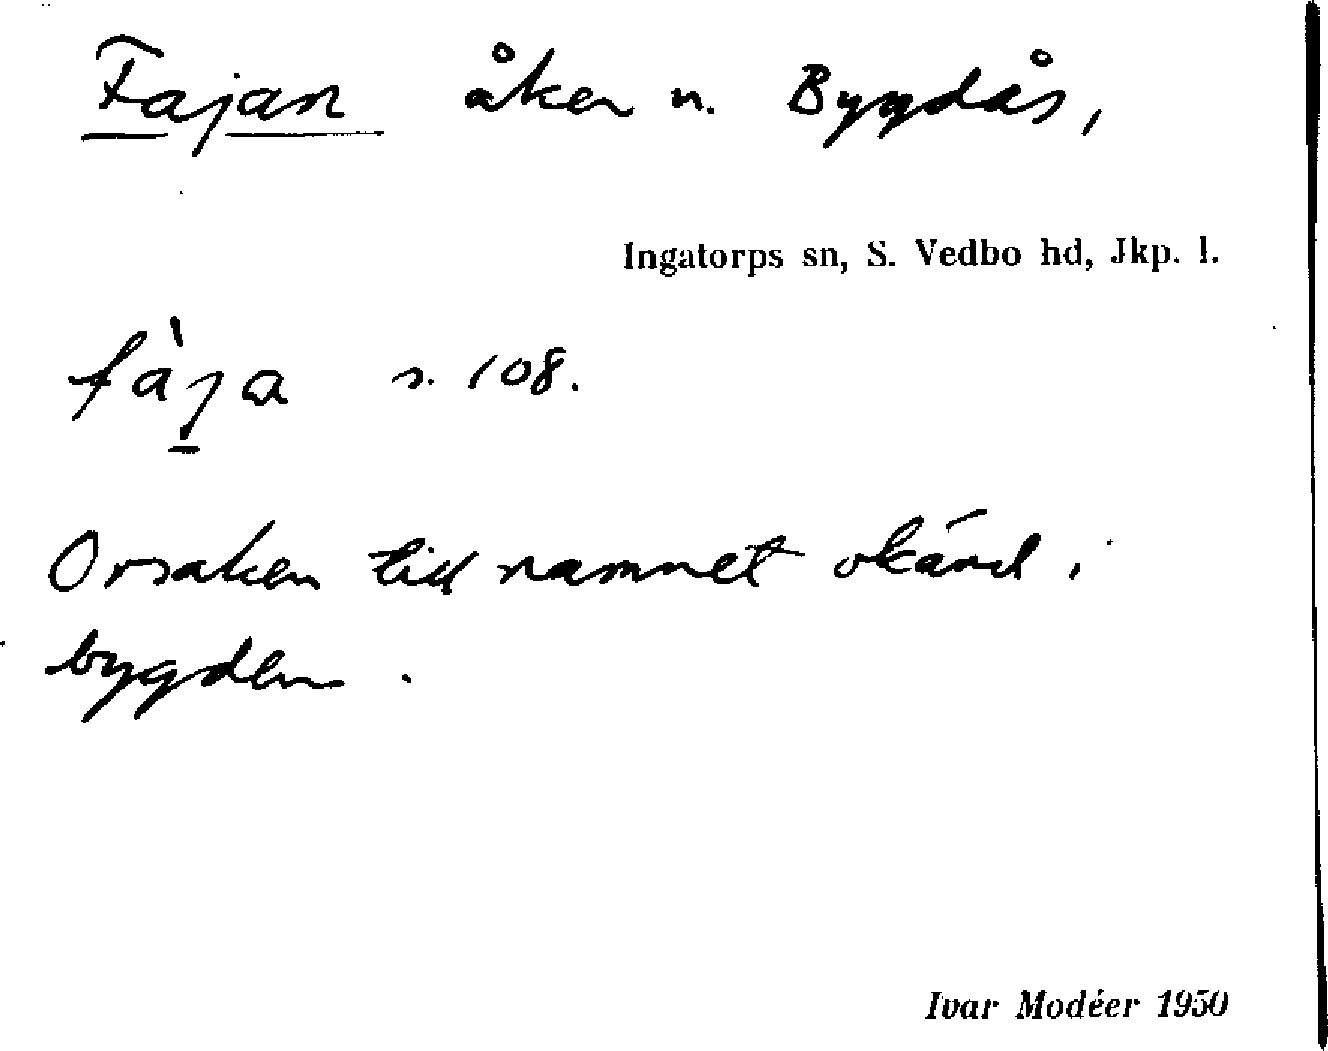 Fajan åker n. Bygdås,
Ingatorps sn, S. Vedbo hd, Jkp. l.
fàja s. 108.
Orsaken till namnet okänd i
bygden.
Ivar Modéer 1950